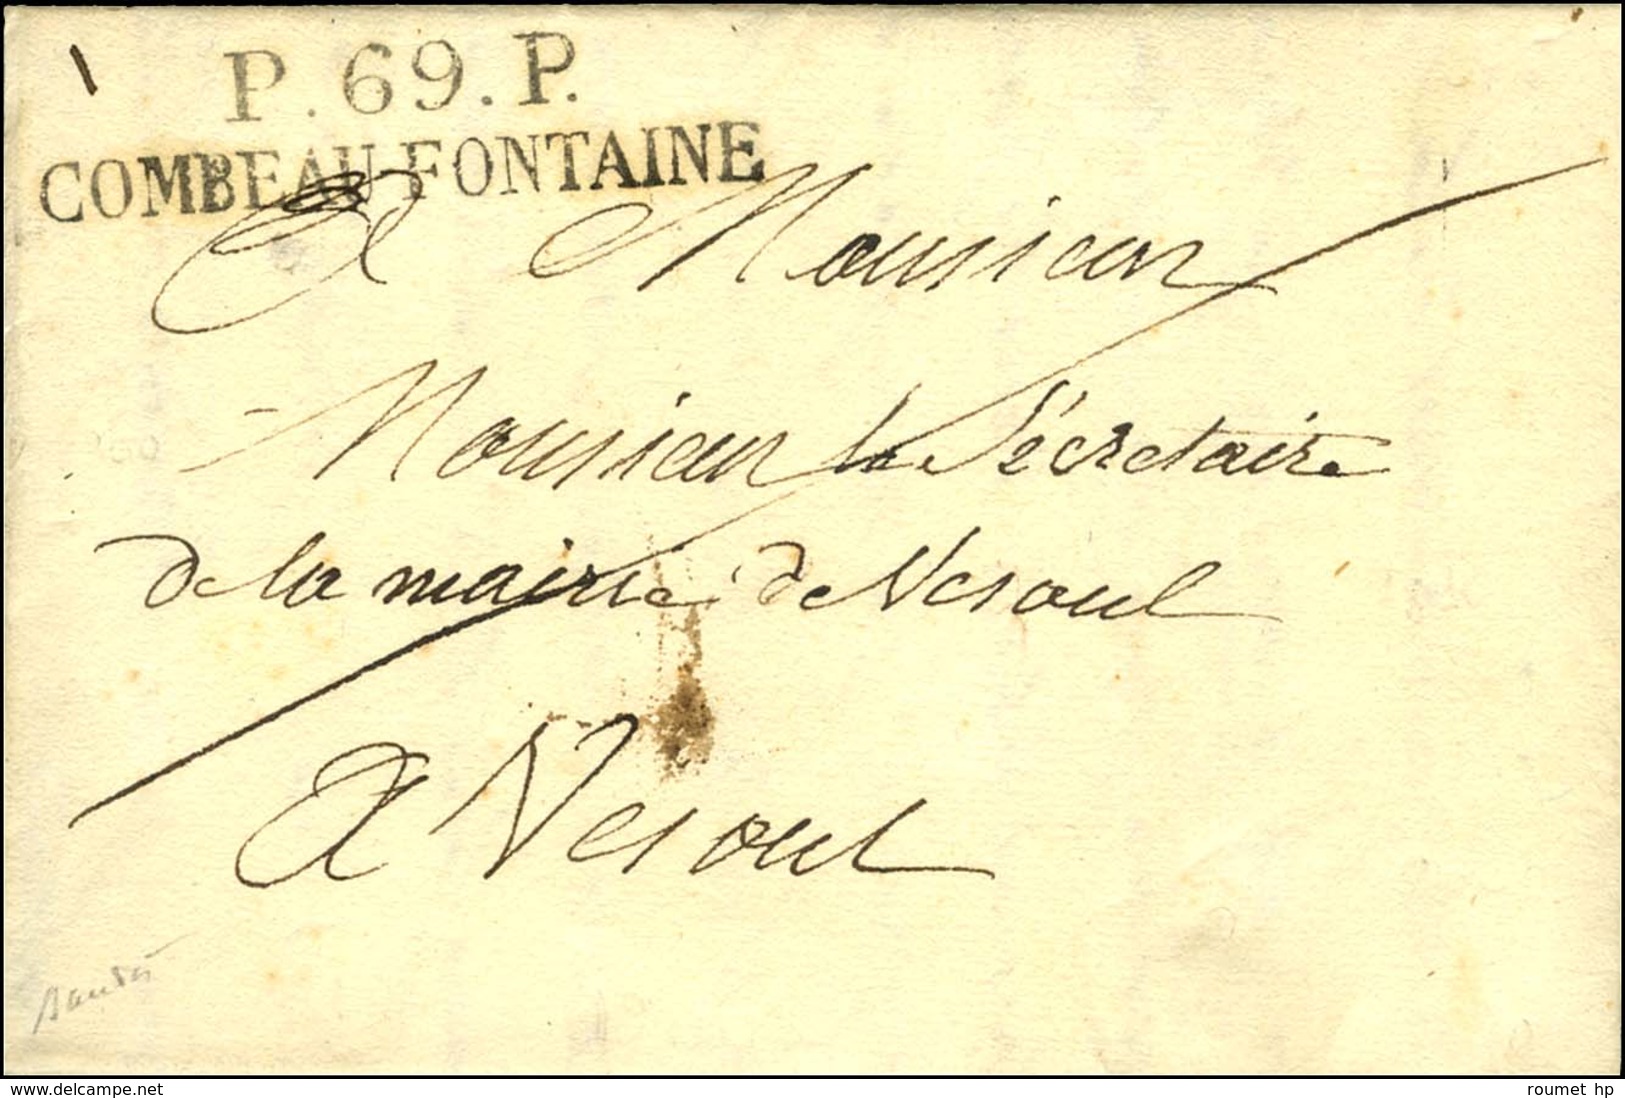 P. 69. P.
COMBEAU-FONTAINE
A Monsieur
Monsieur le Sécretaire
de la mairie de Vesoul
A Vesoul
www.delcampe.net
roumet hp